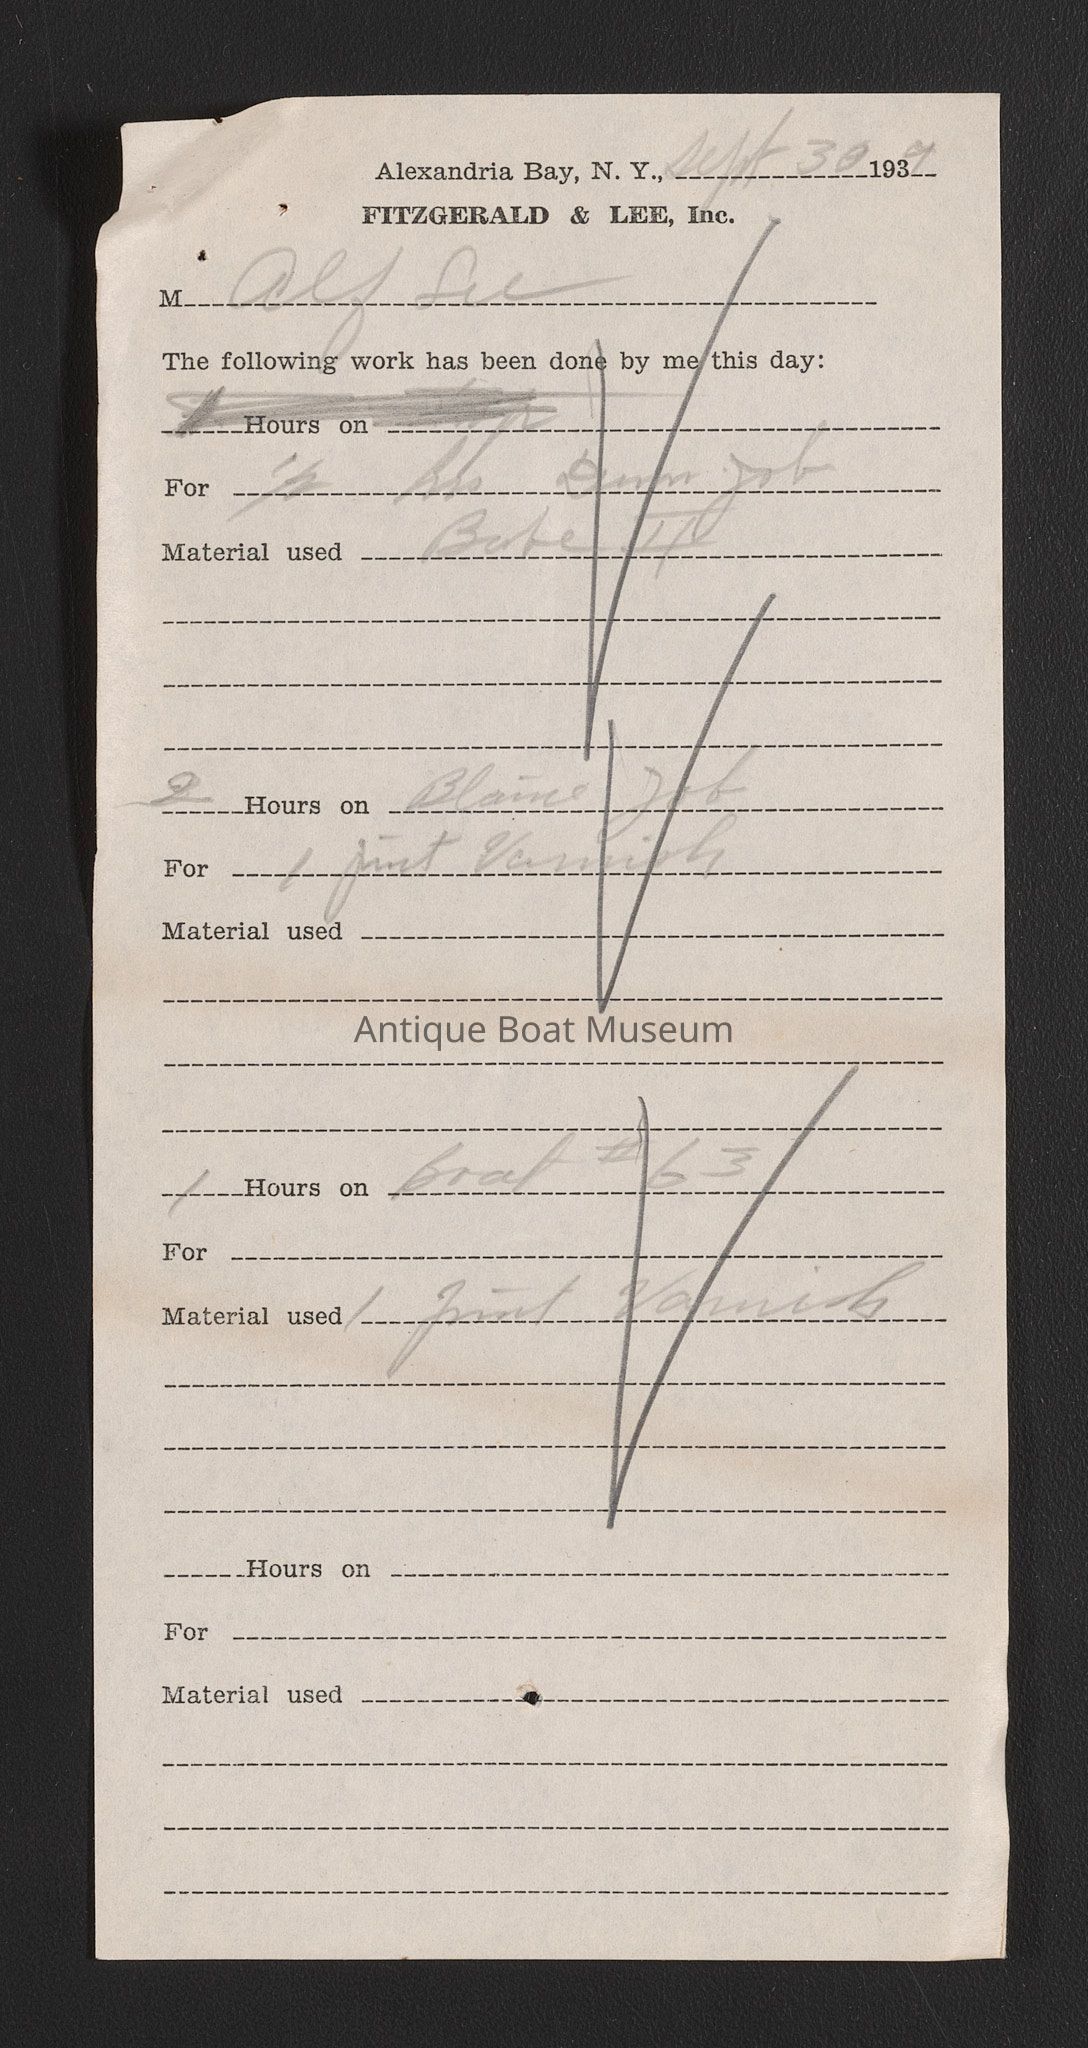 Alexandria Bay, N. Y., Sept 30 1937
FITZGERALD & LEE, Inc.
M Alf Lee
The following work has been done by me this day:
Hours on
For 1/2 hrs Dunn Job
Material used Bobe II
2 Hours on Blaine Job
For 1 pint Varnish
Material used
Antique Boat Museum
1 Hours on boat #63
For
Material used 1 pint Varnish
Hours on
For
Material used